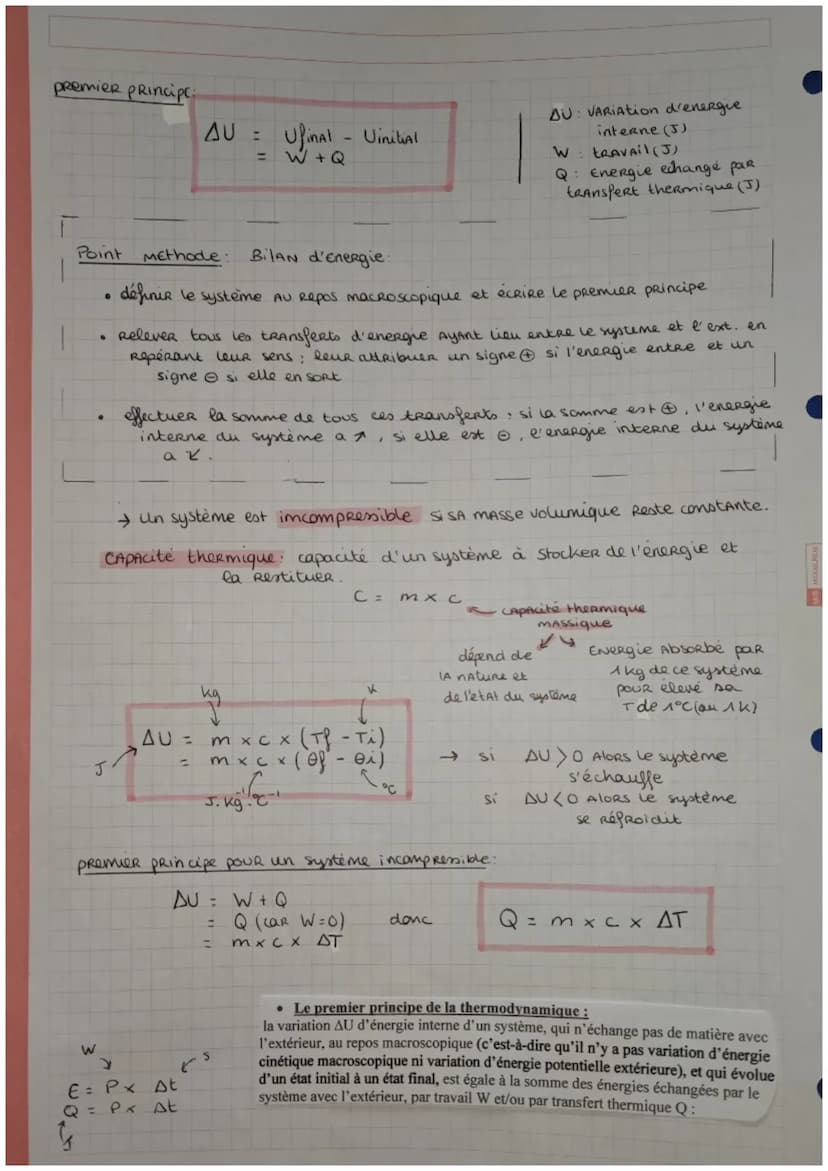 PREMIER PRINCIPE:
ΔU = Ufinal - Uinitial
= W + Q
ΔU : VARIATION d'énergie
interne (J)
W : travail (J)
Q : Energie echangé par
transfert thermique (J)
Point Methode : Bilan d'énergie.
• définir le système au repos macroscopique et écrire le premier principe
• relever tous les transferts d'énergie ayant lieu entre le système et l'ext. en
repérant leur sens : leur attribuer un signe ⊕ si l'energie entre et un
signe ⊖ si elle en sort
• effectuer la somme de tous ces transferts : si la somme est ⊕, l'energie
interne du système a ↗, si elle est ⊖, l'energie interne du système
a ↙.
→ Un système est imcompressible si sa masse volumique reste constante.
Capacité thermique : capacité d'un système à stocker de l'énergie et
la restituer.
C = m × c
capacité thermique
massique
dépend de
la nature et
de l'état du système
Energie Absorbé par
1 kg de ce système
pour élevé sa
T de 1°C (ou 1 K)
kg
K
ΔU = m × c × (Tf - Ti)
= m × c × (θf - θi)
J
J.kg⁻¹.°C⁻¹
°C
→ si ΔU > 0 Alors le système
s'échauffe
si ΔU < 0 Alors le système
se réfroidit
premier principe pour un système incompressible :
ΔU = W + Q
= Q (car W=0) donc
= m × c × ΔT
Q = m × c × ΔT
W
s
E = P × Δt
Q = P × Δt
J
• Le premier principe de la thermodynamique :
la variation ΔU d'énergie interne d'un système, qui n'échange pas de matière avec
l'extérieur, au repos macroscopique (c'est-à-dire qu'il n'y a pas variation d'énergie
cinétique macroscopique ni variation d'énergie potentielle extérieure), et qui évolue
d'un état initial à un état final, est égale à la somme des énergies échangées par le
système avec l'extérieur, par travail W et/ou par transfert thermique Q :